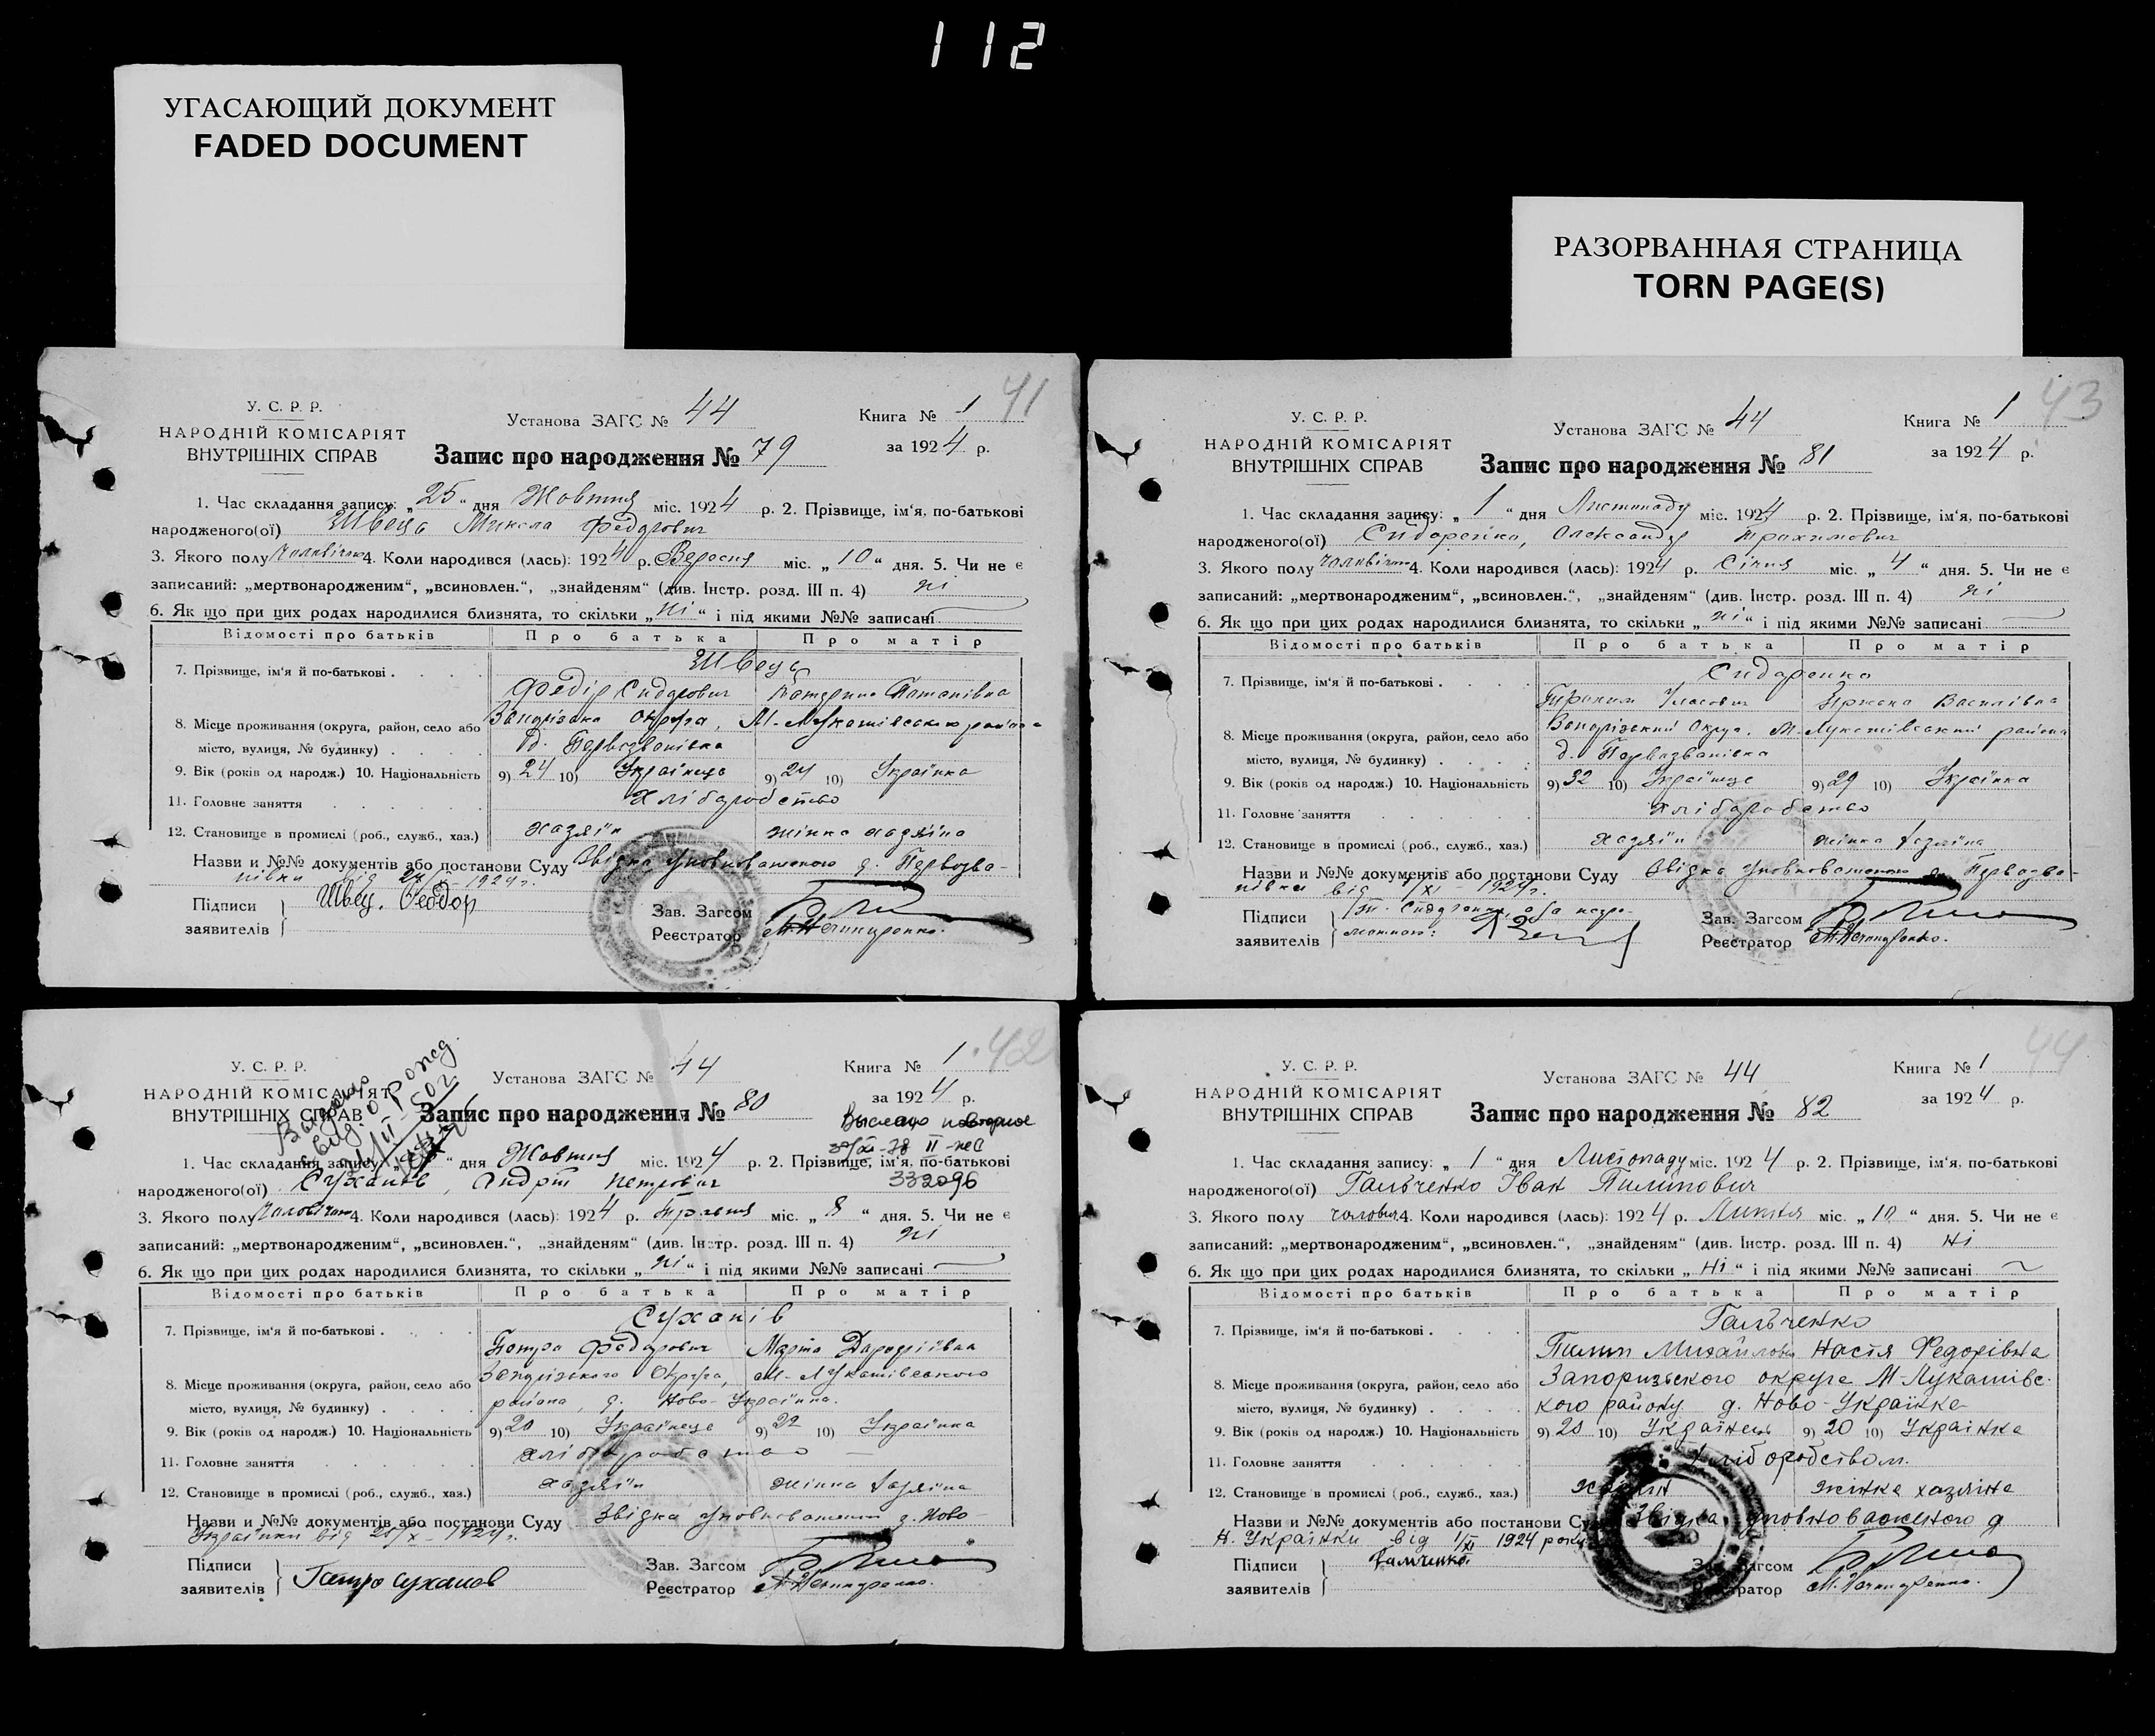 112
УГАСАЮЩИЙ ДОКУМЕНТ
FADED DOCUMENT
РАЗОРВАННАЯ СТРАНИЦА
TORN PAGE(S)
41
У. С. Р. Р.
НАРОДНІЙ КОМІСАРІЯТ
ВНУТРІШНІХ СПРАВ
Установа ЗАГС № 44
Книга № 1
Запис про народження № 79
за 1924 р.
1. Час складання запису: „25“ дня Жовтня міс. 1924 р. 2. Прізвище, ім‘я, по-батькові
народженого(ої) Швець Микола Федорович
3. Якого полу чоловічого 4. Коли народився (лась): 1924 р. Вересня міс. „10“ дня. 5. Чи не є
записаний: „мертвонародженим“, „всиновлен.“, „знайденям“ (див. Інстр. розд. III п. 4) ні
6. Як що при цих родах народилися близнята, то скільки „ні“ і під якими №№ записані
Відомості про батьків Про батька Про матір
7. Прізвище, ім‘я й по-батькові Швець
Федір Сидорович Катерина Потапівна
8. Місце проживання (округа, район, село або Запорізька округа, М-Лукашівського району
місто, вулиця, № будинку) д. Первозванівка
9. Вік (років од народж.) 10. Національність 9) 24 10) Українець 9) 24 10) Українка
11. Головне заняття Хліборобство
12. Становище в промислі (роб., служб., хаз.) хазяїн жінка хазяїна
Назви и №№ документів або постанови Суду Звідка уповноваженого д. Первозва-
нівки від 24/X 1924 г.
Підписи заявителів Швец. Феодор
Зав. Загсом
Реєстратор
43
У. С. Р. Р.
НАРОДНІЙ КОМІСАРІЯТ
ВНУТРІШНІХ СПРАВ
Установа ЗАГС № 44
Книга № 1
Запис про народження № 81
за 1924 р.
1. Час складання запису: „1“ дня Листопаду міс. 1924 р. 2. Прізвище, ім‘я, по-батькові
народженого(ої) Сидоренко, Олександр Трохимович
3. Якого полу чоловічого 4. Коли народився (лась): 1924 р. Січня міс. „4“ дня. 5. Чи не є
записаний: „мертвонародженим“, „всиновлен.“, „знайденям“ (див. Інстр. розд. III п. 4) ні
6. Як що при цих родах народилися близнята, то скільки „ні“ і під якими №№ записані
Відомості про батьків Про батька Про матір
7. Прізвище, ім‘я й по-батькові Сидоренко
Трохим Василівна
8. Місце проживання (округа, район, село або Запорізький округ. М-Лукашівський района
місто, вулиця, № будинку) д. Первозванівка
9. Вік (років од народж.) 10. Національність 9) 32 10) Українець 9) 29 10) Українка
11. Головне заняття хліборобство
12. Становище в промислі (роб., служб., хаз.) хазяїн жінка хазяїна
Назви и №№ документів або постанови Суду Звідка уповноваженого д. Первозва-
нівка від 1/XI - 1924 г.
Підписи заявителів Т. Сидоренко, а за негра-
мотного:
Зав. Загсом
Реєстратор
42
У. С. Р. Р.
НАРОДНІЙ КОМІСАРІЯТ
ВНУТРІШНІХ СПРАВ
Выдано
свид. о Рожд.
Установа ЗАГС № 44
Книга № 1
Запис про народження № 80
за 1924 р.
Выслано повторное
332096
1. Час складання запису: дня Жовтня міс. 1924 р. 2. Прізвище, ім‘я, по-батькові
народженого(ої) Суханов, Андрій Петрович
3. Якого полу чоловічого 4. Коли народився (лась): 1924 р. міс. „8“ дня. 5. Чи не є
записаний: „мертвонародженим“, „всиновлен.“, „знайденям“ (див. Інстр. розд. III п. 4) ні
6. Як що при цих родах народилися близнята, то скільки „ні“ і під якими №№ записані
Відомості про батьків Про батька Про матір
7. Прізвище, ім‘я й по-батькові Суханів
Петро Федорович Марта
8. Місце проживання (округа, район, село або Запорізького Округа, М-Лукашівського
місто, вулиця, № будинку) района, д. Ново-Українка.
9. Вік (років од народж.) 10. Національність 9) 20 10) Українець 9) 22 10) Українка
11. Головне заняття хліборобство
12. Становище в промислі (роб., служб., хаз.) хазяїн жінка хазяїна
Назви и №№ документів або постанови Суду Звідка уповноваженого д. Ново-
Українки від 25/X - 1924 г.
Підписи заявителів Петро Суханов
Зав. Загсом
Реєстратор
44
У. С. Р. Р.
НАРОДНІЙ КОМІСАРІЯТ
ВНУТРІШНІХ СПРАВ
Установа ЗАГС № 44
Книга № 1
Запис про народження № 82
за 1924 р.
1. Час складання запису: „1“ дня Листопаду міс. 1924 р. 2. Прізвище, ім‘я, по-батькові
народженого(ої) Гальченко Іван Пилипович
3. Якого полу чолович. 4. Коли народився (лась): 1924 р. Липня міс. „10“ дня. 5. Чи не є
записаний: „мертвонародженим“, „всиновлен.“, „знайденям“ (див. Інстр. розд. III п. 4) ні
6. Як що при цих родах народилися близнята, то скільки „ні“ і під якими №№ записані
Відомості про батьків Про батька Про матір
7. Прізвище, ім‘я й по-батькові Гальченко
Пилип Михайлович Настя Федорівна
8. Місце проживання (округа, район, село або Запоризького округа М-Лукашівс-
місто, вулиця, № будинку) кого району д. Ново-Українка
9. Вік (років од народж.) 10. Національність 9) 20 10) Українець 9) 20 10) Українка
11. Головне заняття хліборобством.
12. Становище в промислі (роб., служб., хаз.) хазяїн жінка хазяїна
Назви и №№ документів або постанови Суду Звідка уповноваженого д
Н. Українки від 1/XI 1924 року
Підписи заявителів Гальченко
Зав. Загсом
Реєстратор